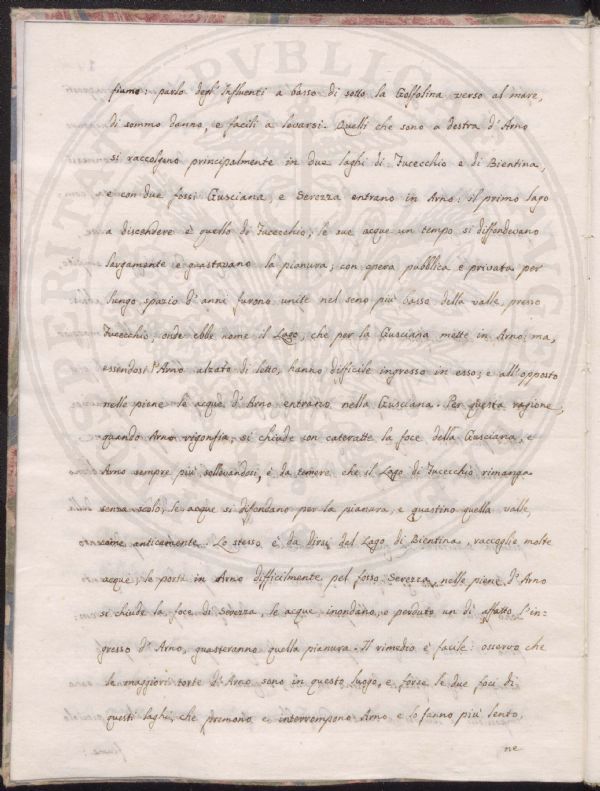 fiamo: parlo degl'Influenti a basso di sotto la Golfolina verso al mare,
di sommo danno, e facili a levarsi. Quelli che sono a destra d'Arno
si raccolgono principalmente in due laghi di Fucecchio e di Bientina,
e con due fossi Gusciana, e Serezza entrano in Arno: il primo lago
a discendere è quello di Fucecchio, le sue acque un tempo si diffondevano
largamente e guastavano la pianura; con opera pubblica e privata per
lungo spazio d'anni furono unite nel seno più basso della valle, presso
Fucecchio, onde ebbe nome il Lago, che per la Gusciana mette in Arno; ma,
essendosi l'Arno alzato di letto, hanno difficile ingresso in esso; e all'opposto
nelle piene le acque d'Arno entrano nella Gusciana. Per questa ragione,
quando Arno rigonfia, si chiude con cateratte la foce della Gusciana, e
Arno sempre più sollevandosi, è da temere che il Lago di Fucecchio rimanga
senza scolo, le acque si difondano per la pianura, e guastino quella valle,
come anticamente. Lo stesso è da dirsi del Lago di Bientina, raccoglie molte
acque, le porta in Arno difficilmente pel fosso Serezza, nelle piene d'Arno
si chiude la foce di Serezza, le acque inondano, e perduto un dì affatto l'in=
gresso d'Arno, guasteranno quella pianura. Il rimedio è facile: osservo che
le maggiori torte d'Arno sono in questo luogo, e forse le due foci di
questi laghi, che premono e interrompono Arno e lo fanno più lento,
ne